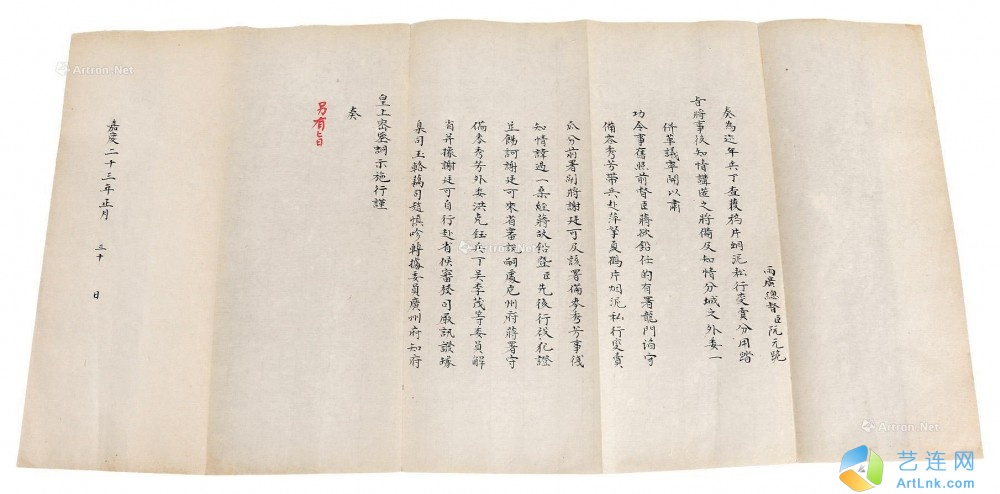 兩廣總督臣阮元跪
奏為迩年兵丁查獲鴉片烟泥私行变賣分用踏
吉將事後知情講匿之將備及知情分城之外委一
併革議革開以肅
功令事舊照前督臣蔣欲鉛任的有署龍門協守
備麥秀芳帶兵赴萍拏夏鶴片烟泥私行變賣
瓜分前署副將謝廷可及該署備麥秀芳事後
知情諱過一案經蔣故鉛暨臣先後行役犯證
並飭訶謝廷可來省審説嗣處危州府蔣署守
備麥秀芳外委洪克鈺兵丁吴李茂等委員解
省并據謝廷可自行赴省候審發司嚴訊證據
臬司玉輅藩司趙慎吟轉據委員廣州府知府
皇上密鉴詞示施行謹
奏
另有旨
嘉慶二十三年正月 三十 日
Artron.Net
Artron.Net
Artron.Net
艺连网
ArtLnk.com